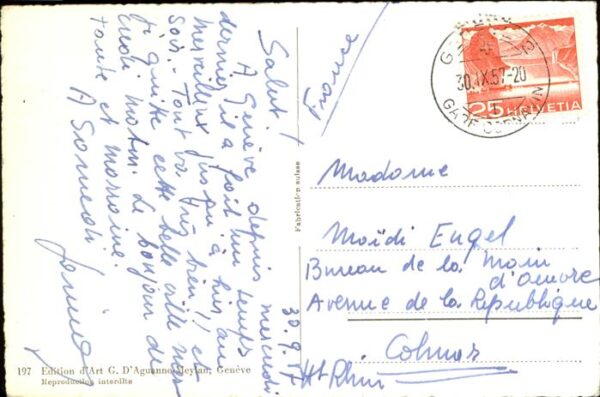 Salut!
A Genève depuis mercredi
dernier il a fait un temps
merveilleux jusqu'à hier au
soir. Tout va très bien!! et
je quitte cette belle ville
Lundi matin. Le bonjour de
tante et marraine.
A Samedi
30.9.57
France
Madame
Maïdi Engel
Bureau de la Main
d'oeuvre
Avenue de la République
Colmar
Ht Rhin
30.IX.57-20
GARE CORNAVIN
25 HELVETIA
Fabrication suisse
197 Edition d'Art G. D'Aguanno-Meylan, Genève
Reproduction interdite